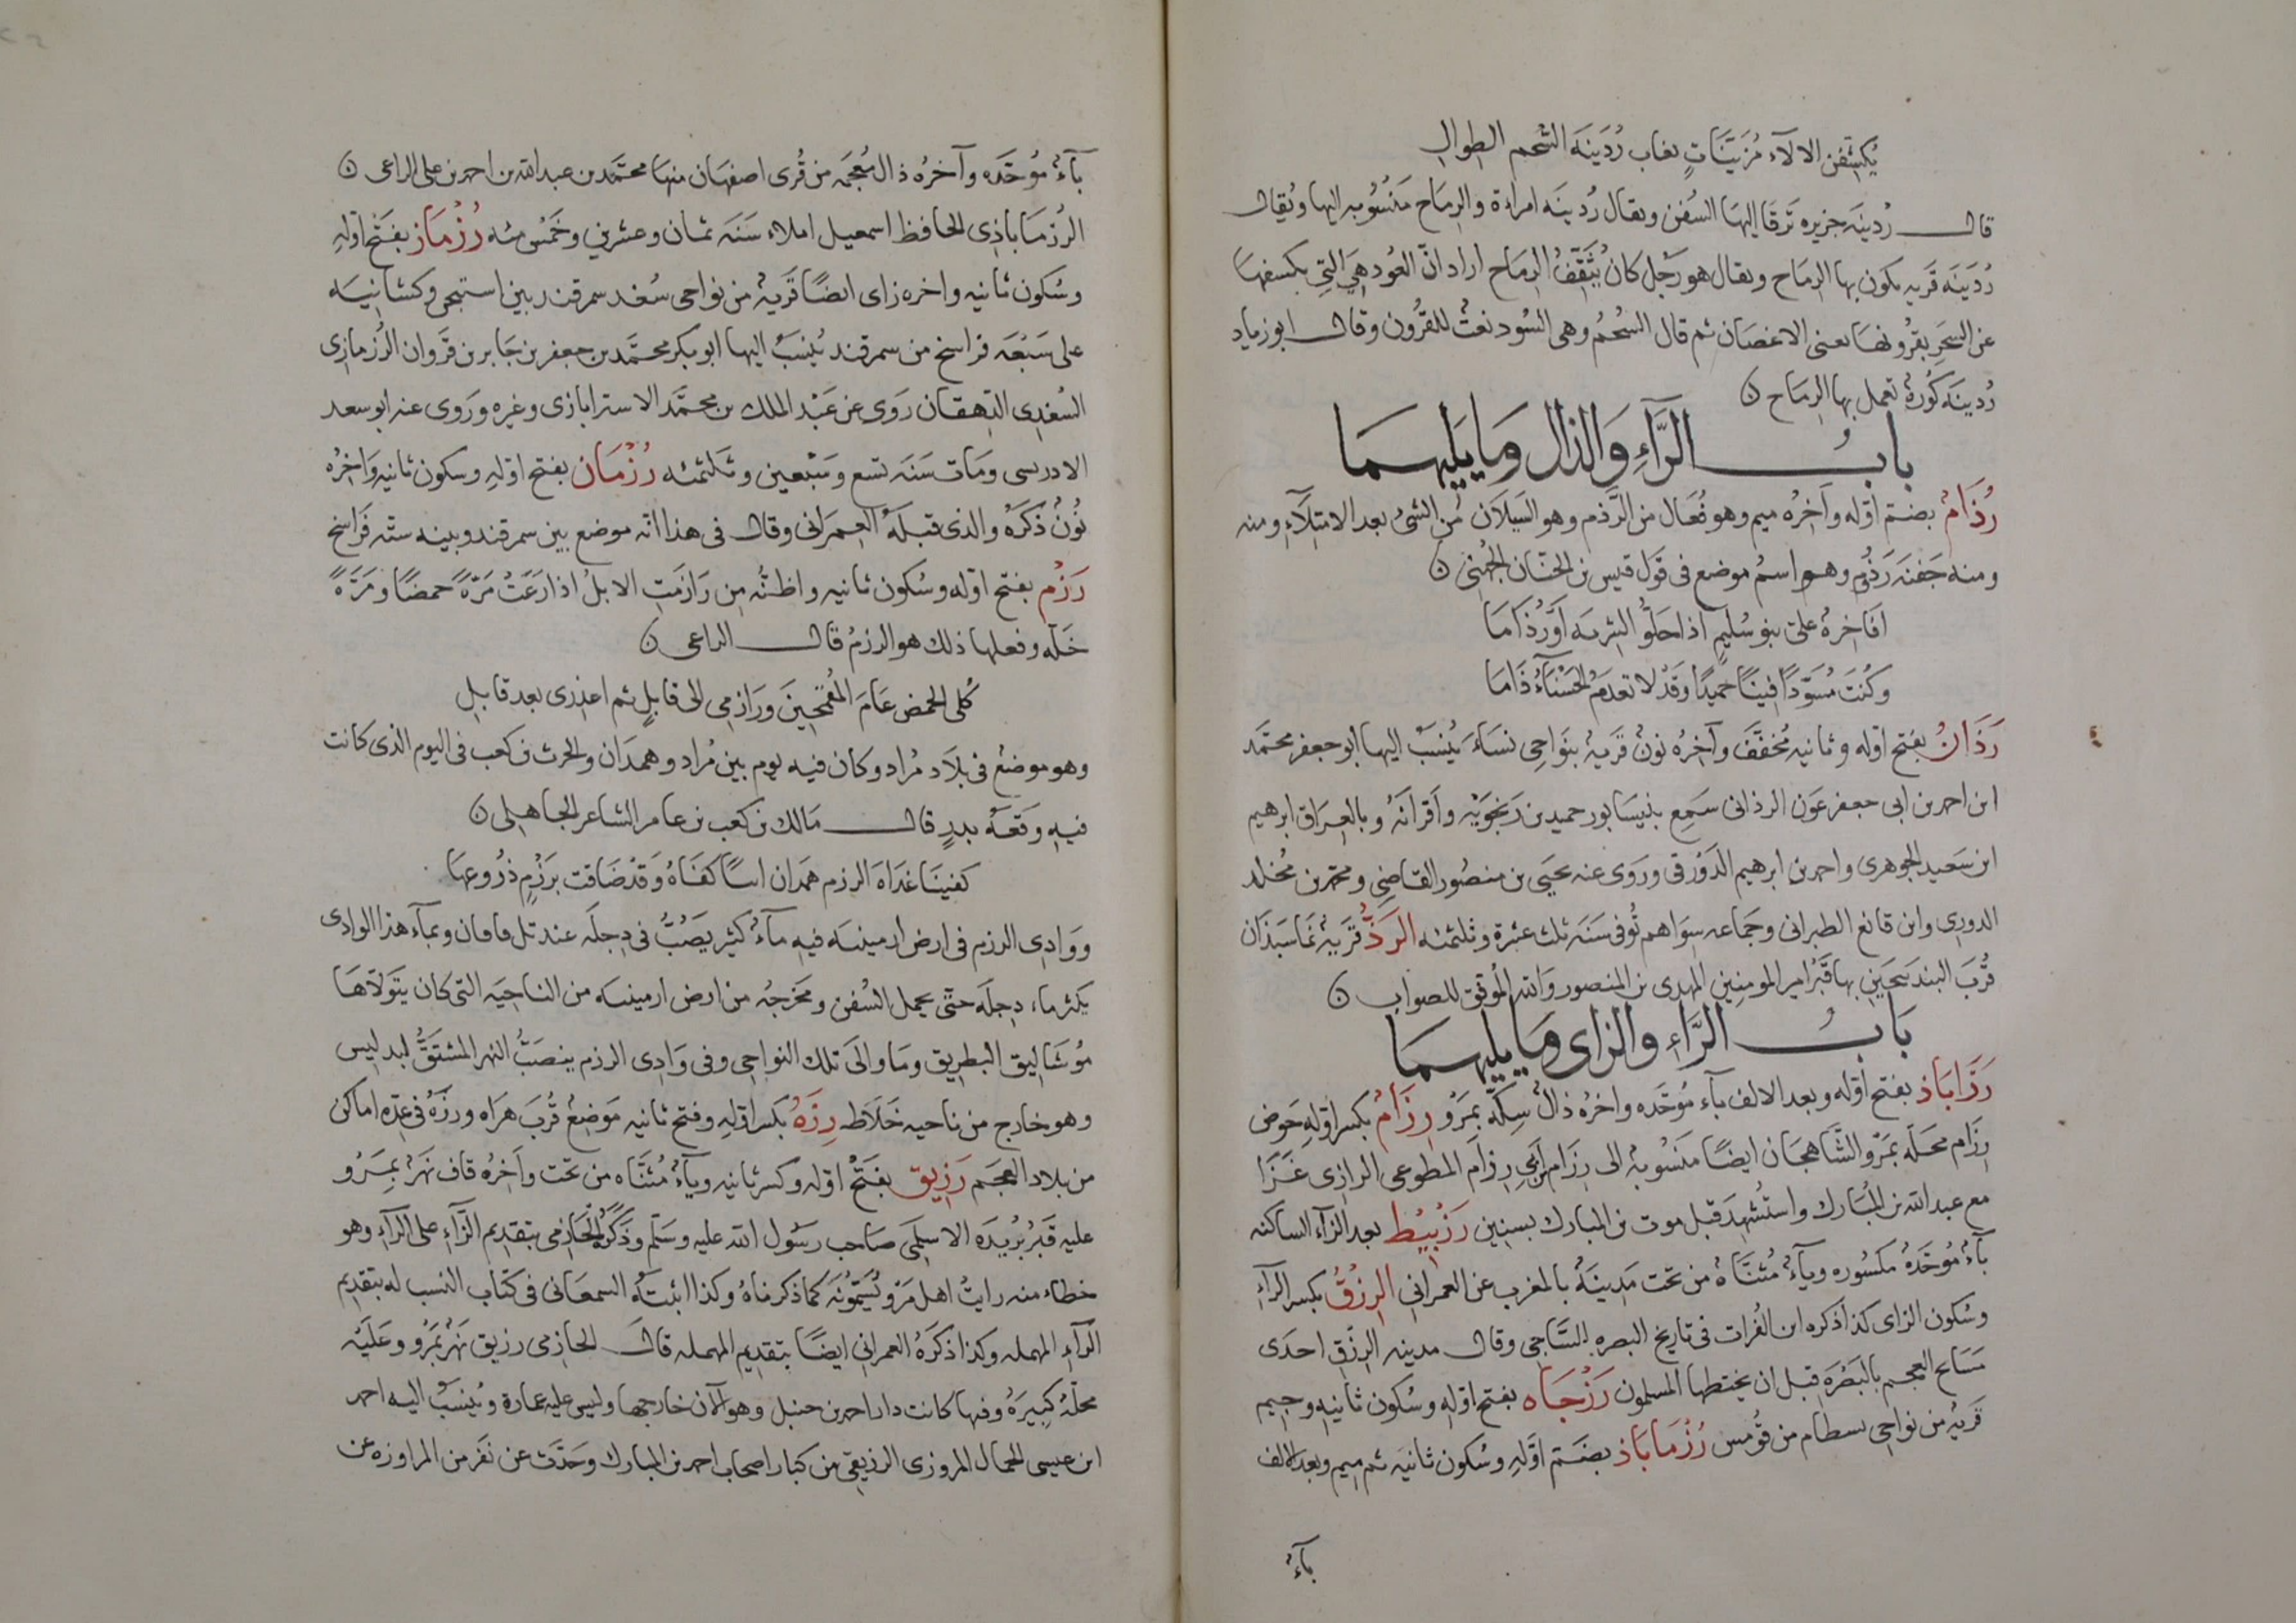 يكشفن الالآء مزينات بغاب ردينة السحم الطوال
قال ردينه جزيره ترفا اليها السفن ويقال ردينه امراة والرماح منسوبه اليها ويقال
ردينه قريه يكون بها الرماح ويقال هو رجل كان يثقف الرماح اراد ان العود هي التي يكسفها
عن السحر بقرونها يعنى الاغصان ثم قال السحم وهى السود نعت للقرون وقال ابو زياد
ردينه كورة تعمل بها الرماح ن
باب الرآء والذال وما يليهما
رذام بضم اوله وآخره ميم وهو فعال من الرذم وهو السيلان من الشئ بعد الامتلآء ومنه
ومنه جفنه رذوم وهو اسم موضع فى قول قيس بن الحنان الجهنى ن
افاخرة على بنو سليم اذا حلوا الشربه او رذاما
وكنت مسودا فينا حميدا وقد لا تعدم الحسنآء ذاما
رذان بفتح اوله وثانيه مخفف وآخره نون قرية بنواحى نساء ينسب اليها ابو جعفر محتمد
ابن احمد بن ابى جعفر عون الرذانى سمع بنيسابور حميد بن زنجويه واقرانه وبالعراق ابرهيم
ابن سعيد الجوهرى واحمد بن ابرهيم الدورقى وروى عنه يحيى بن منصور القاضى ومحمد بن مخلد
الدورى وابن قانع الطبرانى وجماعه سواهم توفى سنه ثلث عشرة وثلثمئه الرذ قرية بماسبذان
قرب البندنيجين بها قبر امير المومنين المهدى بن المنصور والله الموفق للصواب ن
باب الرآء والزاى وما يليهما
رزاباذ بفتح اوله وبعد الالف بآء موحده واخره ذال سكة بمرو رزام بكسر اوله حوض
رزام محله بمرو الشاهجان ايضا منسوبة الى رزام بن ابى رزام المطوعى الرازى غزا
مع عبد الله بن المبارك واستشهد قبل موت بن المبارك بسنين رزبيط بعد الزآء الساكنه
بآء موحدة مكسوره ويآء مثناة من تحت مدينة بالمغرب عن العمرانى الرزق بكسر الرآء
وسكون الزاى كذا ذكره ابن الفرات فى تاريخ البصره للساجى وقال مدينه الرزق احدى
مسالح العجم بالبصره قبل ان يختطها المسلمون رزجاه بفتح اوله وسكون ثانيه وجيم
قرية من نواحى بسطام من قومس رزماباذ بضم اوله وسكون ثانيه ثم ميم وبعد الالف
بآء
بآء موحده وآخره ذال معجمه من قرى اصفهان منها محتمد بن عبد الله بن احمد بن على الراعى ن
الرزماباذى الحافظ اسمعيل املاء سنه ثمان وعشرين وخمس مئه رزماز بفتح اوله
وسكون ثانيه واخره زاى ايضا قرية من نواحى سغد سمرقند بين استيجن وكشانيه
على سبعه فراسخ من سمرقند ينسب اليها ابو بكر محتمد بن جعفر بن جابر بن فروان الرزمازى
السغدى الدهقان روى عن عبد الملك بن محتمد الاستراباذى وغيره وروى عنه ابو سعد
الادريسى ومات سنه تسع وسبعين وثلثمئه رزمان بفتح اوله وسكون ثانيه واخره
نون ذكره والذى قبله العمرانى وقال فى هذا انه موضع بين سمرقند وبينه سته فراسخ
رزم بفتح اوله وسكون ثانيه واظنه من رازمت الابل اذا رعت مرة حمضا ومرة
خله وفعلها ذلك هو الرزم قال الراعى ن
كلى الحمض عام المقحمين ورازمى الى قابل ثم اعذرى بعد قابل
وهو موضع فى بلاد مراد وكان فيه يوم بين مراد وهمدان والحرث بن كعب فى اليوم الذى كانت
فيه وقعه بدر قال مالك بن كعب بن عامر الشاعر الجاهلى ن
كفينا غداه الرزم همدان اسا كفاه وقد ضاقت برزم ذروعها
ووادى الرزم فى ارض ارمينيه فيه مآء كثير يصب فى دجله عند تل فافان وبمآء هذا الوادى
يكثر ماء دجله حتى يحمل السفن ومخرجه من ارض ارمينيه من الناحيه التى كان يتولاها
موشاليق البطريق وما والى تلك النواحى وفى وادى الرزم ينصب النهر المشتق لبدليس
وهو خارج من ناحيه خلاط رزه بكسر اوله وفتح ثانيه موضع قرب هراه ورزه فى عده اماكن
من بلاد العجم رزيق بفتح اوله وكسر ثانيه ويآء مثناه من تحت وآخره قاف نهر بمرو
عليه قبر بريده الاسلمى صاحب رسول الله عليه وسلم وذكره الحازمى بتقديم الزآء على الرآء وهو
خطاء منه رايت اهل مرو يسمونه كما ذكرناه وكذا اثبته السمعانى فى كتاب النسب له بتقديم
الرآء المهمله وكذا ذكره العمرانى ايضا بتقديم المهمله قال الحازمى رزيق نهر بمرو وعليه
محلة كبيره وفيها كانت دار احمد بن حنبل وهو الآن خارجها وليس عليه عمارة وينسب اليه احمد
ابن عيسى الحمال المروزى الرزيقى من كبار اصحاب احمد بن المبارك وحدث عن نفر من المراوزه عن